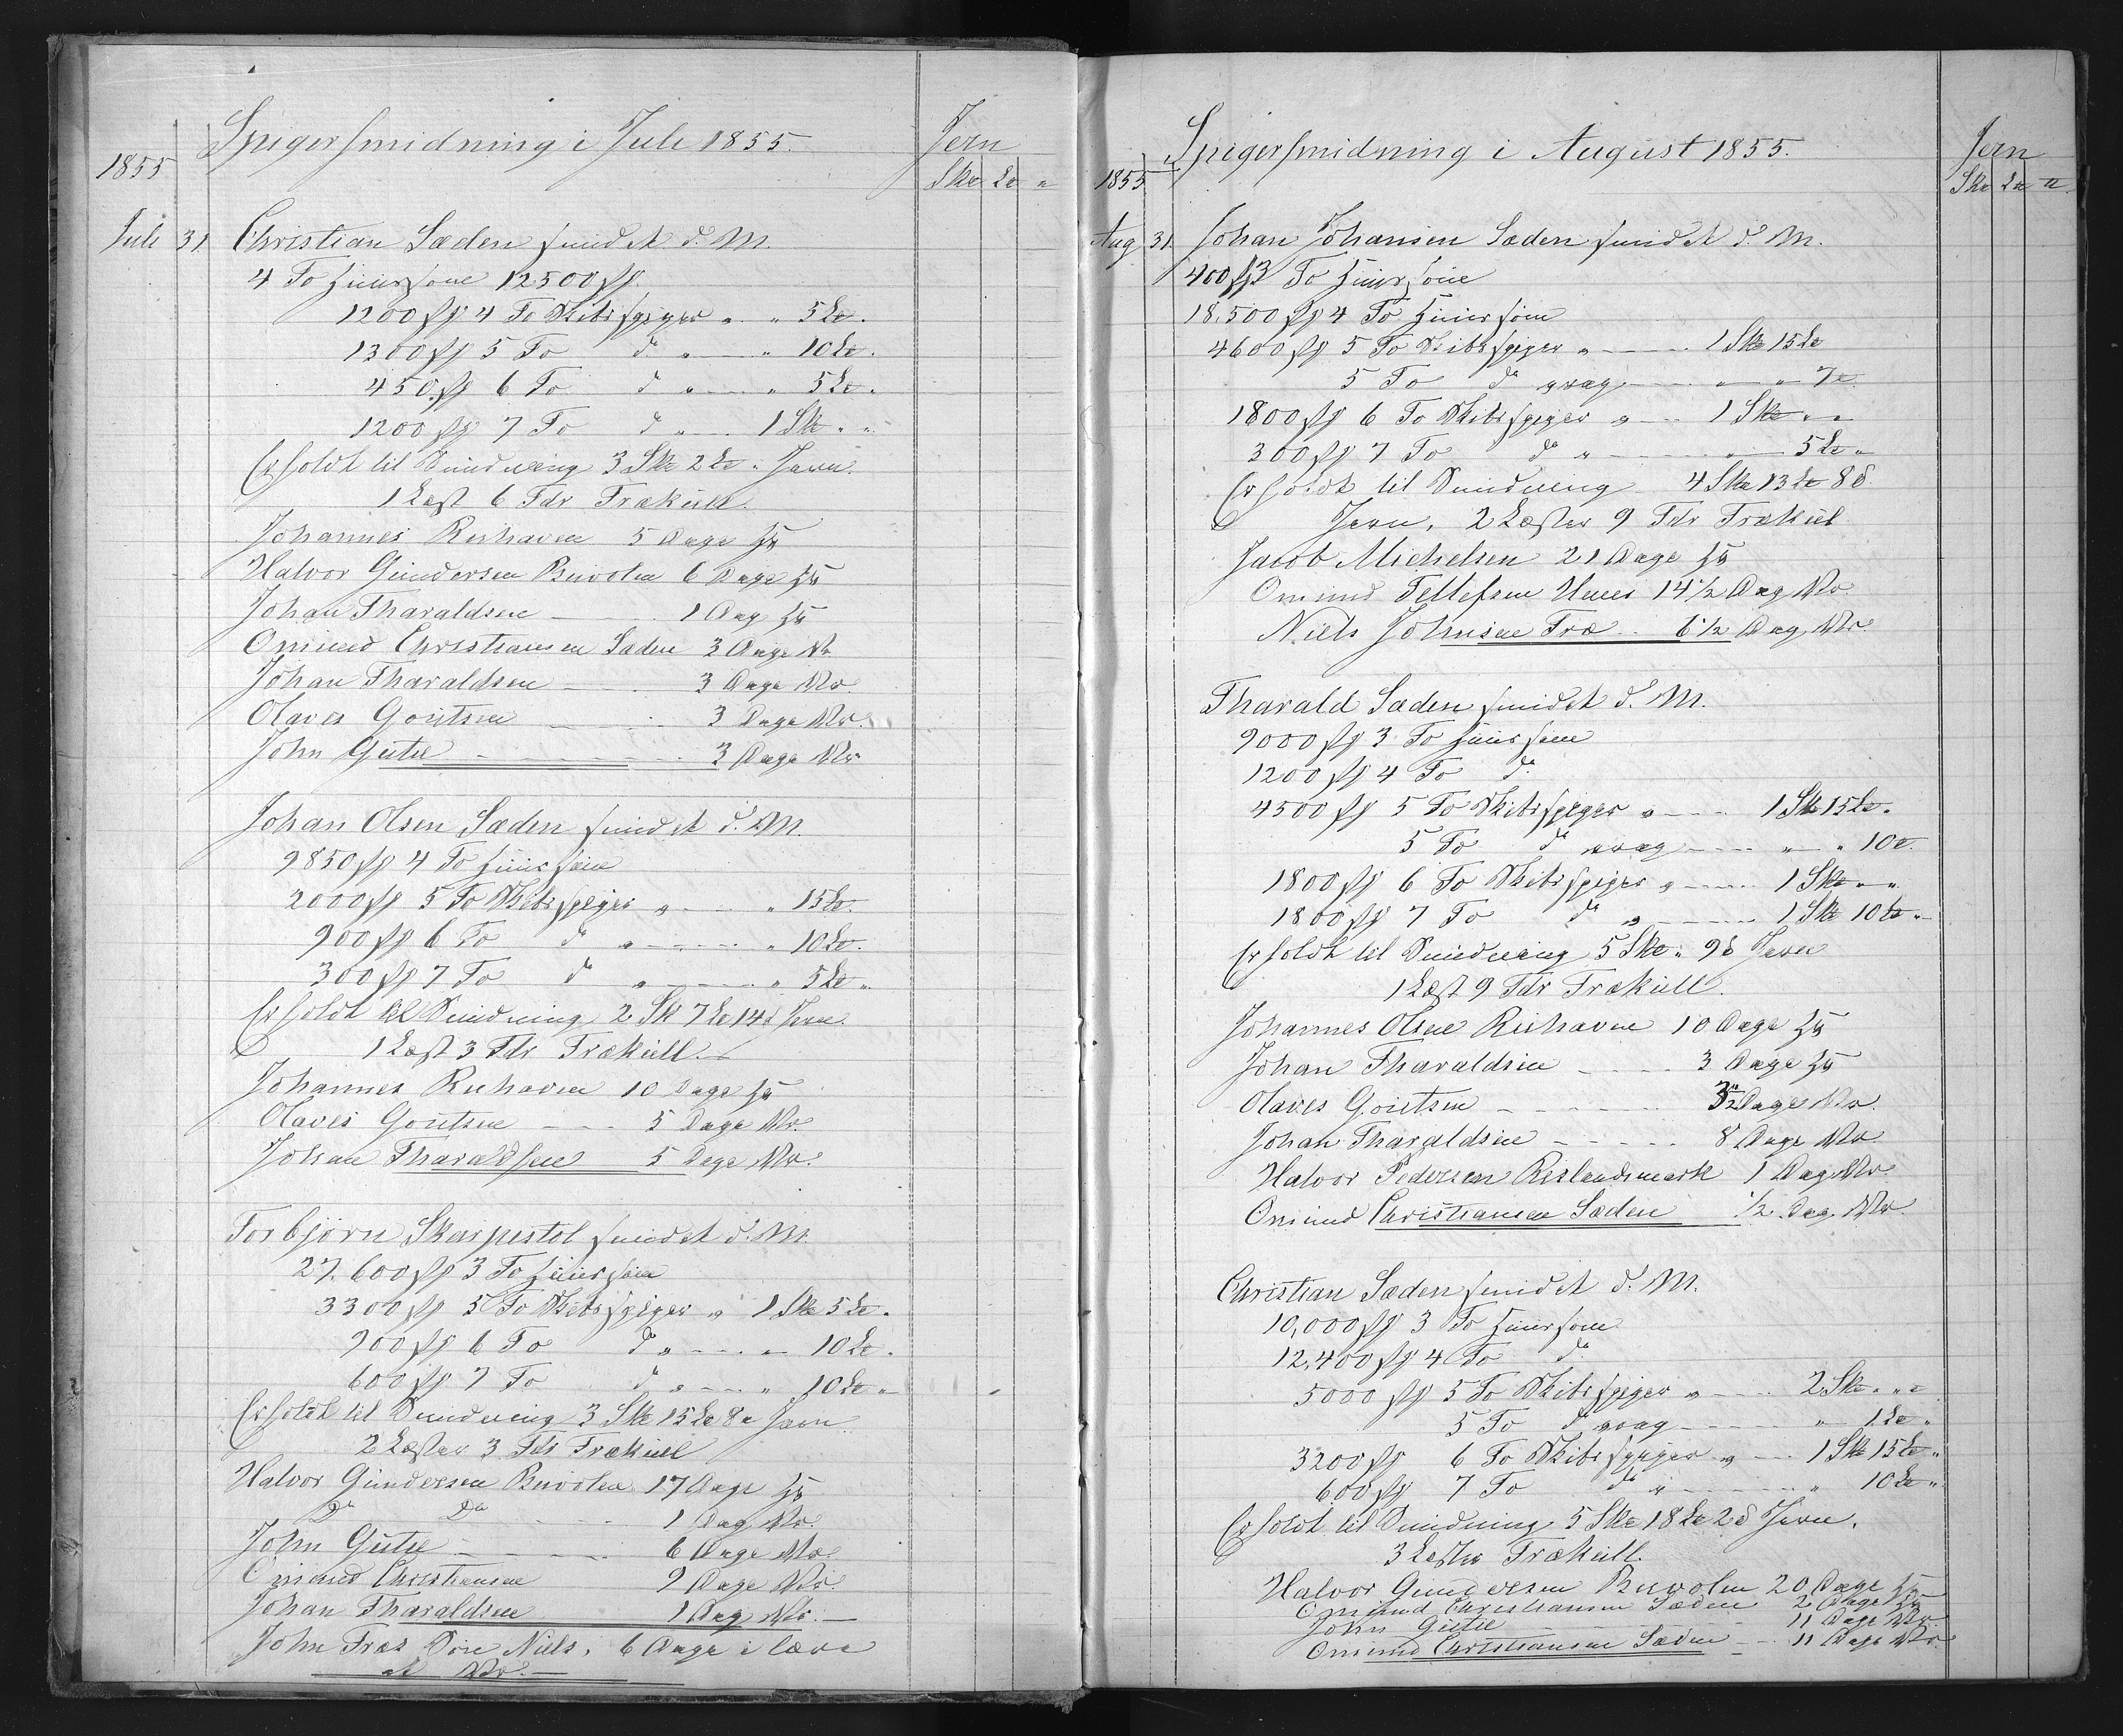 Spigersmidning i Juli 1855.
Jern
1855
Sk℔ L℔ ℔
Juli 31. Christian Sæden smidet d. M.
4 To Huussøm 12500 st
1200 st 4 To Skibsspiger " " 5 L℔ "
1300 st 5 To do " " 10 L℔ "
450 st 6 To do " " 5 L℔ "
1200 st 7 To do " 1 Sk℔ " "
Erholdt til Smidning 3 Sk℔ 2 L℔ " Jern
1 Læst 6 Tdr Trækull.
Johannes Ruhaven 5 Dage
Halvor Gundersen Buvolen 6 Dage
Johan Tharaldsen 1 Dag
Omund Christiansen Sæden 3 Dage
Johan Tharaldsen 3 Dage
Olaves Goutsen 3 Dage
John Gutu 3 Dage
Johan Olsen Sæden smidet d. M.
9850 st 4 To Huussøm
2000 st 5 To Skibsspiger " " 15 L℔
900 st 6 To do " " 10 L℔
300 st 7 To do " " 5 L℔ "
Erholdt til Smidning 2 Sk 7 L℔ 14 ℔ Jern
1 Læst 3 Tdr Trækull.
Johannes Ruhaven 10 Dage
Olaves Goutsen 5 Dage
Johan Tharaldsen 5 Dage
Torbjørn Skarpestol smidet d. M.
27.600 st 3 To Huussøm
3300 st 5 To Skibsspiger " 1 Sk℔ 5 L℔ "
900 st 6 To do " " 10 L℔ "
600 st 7 To do " " 10 L℔ "
Erholdt til Smidning 3 Sk℔ 15 L℔ 8 ℔ Jern
2 Læster 3 Tdr Trækull
Halvor Gundersen Buvolen 17 Dage
Do Do 1 Dag
John Gutu 6 Dage
Omund Christiansen 9 Dage
Johan Tharaldsen 1 Dag
John Træs Søn Niels, 6 Dage i lære
Spigersmidning i August 1855.
Jern
1855
Sk℔ L℔ ℔
Aug 31. Johan Johansen Sæden smidet d. M.
400 st 3 To Huussøm
18.500 st 4 To Huussøm
4600 st 5 To Skibsspiger " 1 Sk℔ 15 L℔
5 To do vrag " " 7 ℔
1800 st 6 To Skibsspiger " 1 Sk℔ " "
300 st 7 To do " " 5 L℔ "
Erholdt til Smidning 4 Sk℔ 13 L℔ 8 ℔
Jern, 2 Læster 9 Tdr Trækul
Jacob Michelsen 21 Dage
Omund Tellefsen Unes 14 1/2 Dag
Niels Johnsen Træ 6 1/2 Dag
Tharald Sæden smidet d. M.
9000 st 3 To Huussøm
1200 st 4 To do
4500 st 5 To Skibsspiger " 1 Sk℔ 15 L℔ "
5 To do vrag " " 10 ℔
1800 st 6 To Skibsspiger " 1 Sk℔ " "
1800 st 7 To do " 1 Sk℔ 10 L℔ "
Erholdt til Smidning 5 Sk℔ " 9 ℔ Jern
1 Læst 9 Tdr Trækull.
Johannes Olsen Ruhaven 10 Dage
Johan Tharaldsen 3 Dage
Olaves Goutsen 3 1/2 Dage
Johan Tharaldsen 8 Dage
Halvor Pedersen Reslandsmark 1 Dag
Omund Christiansen Sæden 1/2 Dag
Christian Sæden smidet d. M.
10,000 st 3 To Huussøm
12,400 st 4 To do
5000 st 5 To Skibsspiger " 2 Sk℔ " "
5 To do vrag " 1 L℔ "
3200 st 6 To Skibsspiger " 1 Sk℔ 15 L℔ "
600 st 7 To do " " 10 L℔ "
Erholdt til Smidning 5 Sk℔ 18 L℔ 2 ℔ Jern.
3 Læster Trækull.
Halvor Gundersen Buvolen 20 Dage
Omund Christiansen Sæden 2 Dage
John Gutu 11 Dage
Omund Christiansen Sæden 11 Dage